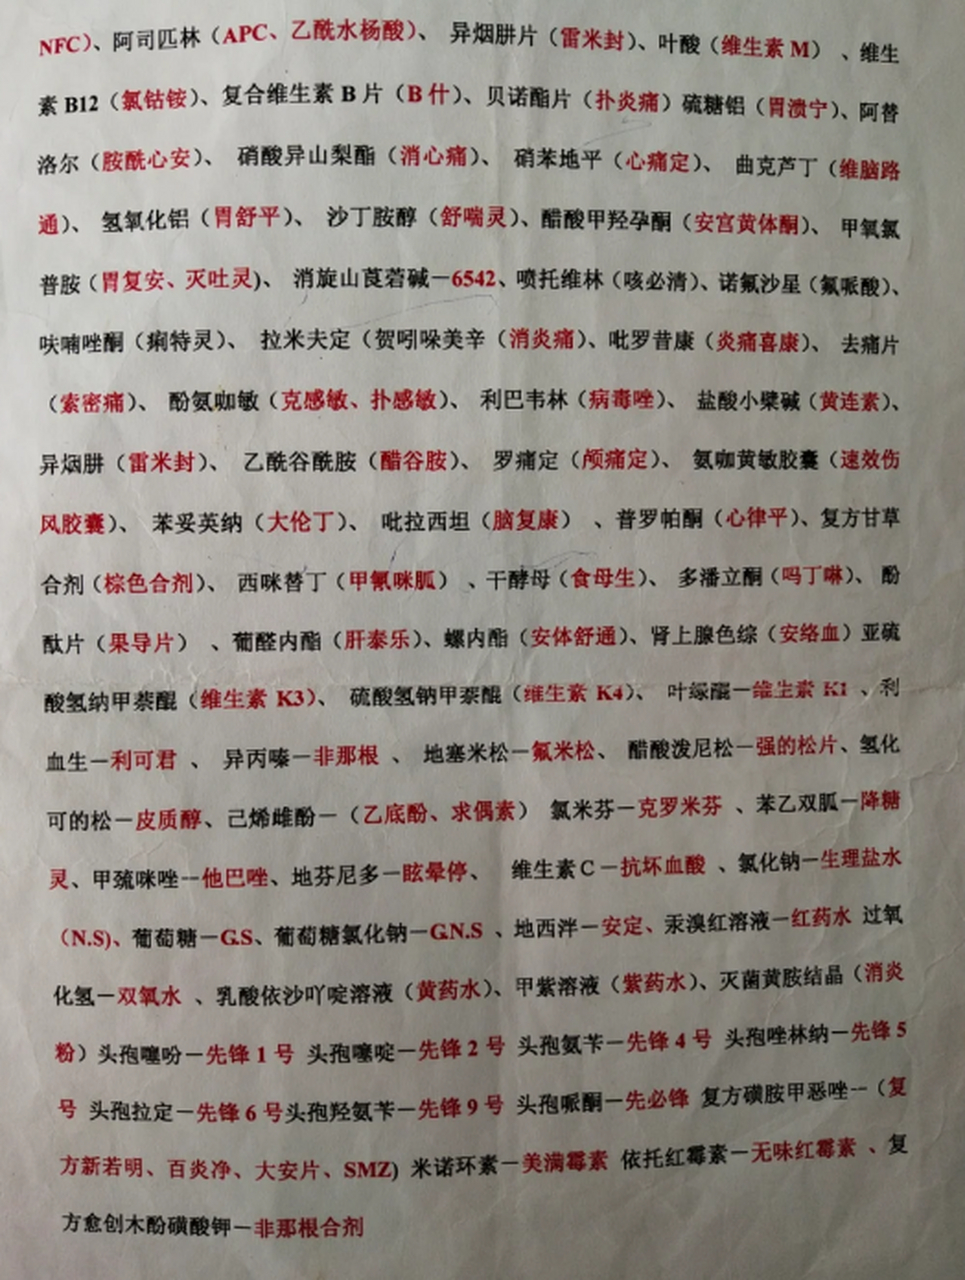 NFC）、阿司匹林（APC、乙酰水杨酸）、 异烟肼片（雷米封）、叶酸（维生素 M） 、维生
素 B12（氯钴铵）、复合维生素 B 片（B 什）、贝诺酯片（扑炎痛）硫糖铝（胃溃宁）、阿替
洛尔（胺酰心安）、 硝酸异山梨酯（消心痛）、 硝苯地平（心痛定）、 曲克芦丁（维脑路
通）、 氢氧化铝（胃舒平）、 沙丁胺醇（舒喘灵）、醋酸甲羟孕酮（安宫黄体酮）、 甲氧氯
普胺（胃复安、灭吐灵)、 消旋山莨菪碱－6542、喷托维林（咳必清）、诺氟沙星（氟哌酸）、
呋喃唑酮（痢特灵）、 拉米夫定（贺吲哚美辛（消炎痛）、吡罗昔康（炎痛喜康）、 去痛片
（索密痛）、 酚氨咖敏（克感敏、扑感敏）、 利巴韦林（病毒唑）、 盐酸小檗碱（黄连素）、
异烟肼（雷米封）、 乙酰谷酰胺（醋谷胺）、 罗痛定（颅痛定）、 氨咖黄敏胶囊（速效伤
风胶囊）、 苯妥英纳（大伦丁）、 吡拉西坦（脑复康） 、普罗帕酮（心律平）、复方甘草
合剂（棕色合剂）、 西咪替丁（甲氰咪胍） 、干酵母（食母生）、 多潘立酮（吗丁啉）、 酚
酞片（果导片） 、葡醛内酯（肝泰乐）、螺内酯（安体舒通）、肾上腺色综（安络血）亚硫
酸氢纳甲萘醌（维生素 K3）、 硫酸氢钠甲萘醌（维生素 K4）、 叶绿醌－维生素 K1 、利
血生－利可君 、 异丙嗪－非那根 、 地塞米松－氟米松、 醋酸泼尼松－强的松片、氢化
可的松－皮质醇、己烯雌酚－（乙底酚、求偶素） 氯米芬－克罗米芬 、苯乙双胍－降糖
灵、甲巯咪唑--他巴唑、地芬尼多－眩晕停、 维生素 C－抗坏血酸 、氯化钠－生理盐水
（N.S)、葡萄糖－G.S、葡萄糖氯化钠－G.N.S 、地西泮－安定、汞溴红溶液－红药水 过氧
化氢－双氧水 、乳酸依沙吖啶溶液（黄药水）、甲紫溶液（紫药水）、灭菌黄胺结晶（消炎
粉）头孢噻吩－先锋 1 号 头孢噻啶－先锋 2 号 头孢氨苄－先锋 4 号 头孢唑林纳－先锋 5
号 头孢拉定－先锋 6 号头孢羟氨苄－先锋 9 号 头孢哌酮－先必锋 复方磺胺甲恶唑--（复
方新若明、百炎净、大安片、SMZ) 米诺环素－美满霉素 依托红霉素－无味红霉素 、复
方愈创木酚磺酸钾－非那根合剂